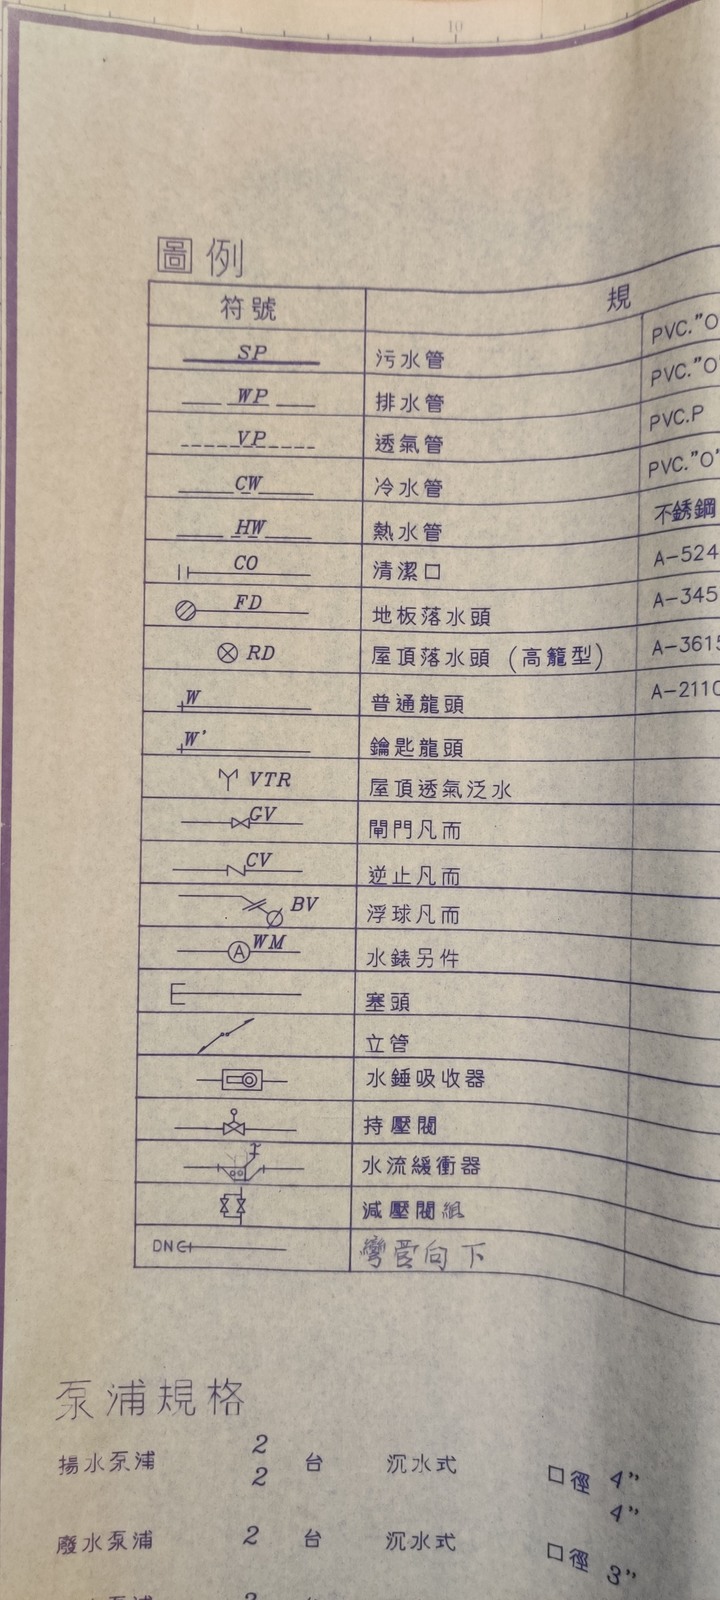 10
圖例
符號 規
SP 污水管 PVC."O
WP 排水管 PVC."O
VP 透氣管 PVC.P
CW 冷水管 PVC."O"
HW 熱水管 不銹鋼
CO 清潔口 A-524
FD 地板落水頭 A-345
RD 屋頂落水頭 (高籠型) A-3615
W 普通龍頭 A-2110
W' 鑰匙龍頭
VTR 屋頂透氣泛水
GV 閘門凡而
CV 逆止凡而
BV 浮球凡而
A WM 水錶另件
塞頭
立管
水錘吸收器
持壓閥
水流緩衝器
減壓閥組
DN 彎管向下
泵浦規格
揚水泵浦 2 台 沉水式 口徑 4"
2 4"
廢水泵浦 2 台 沉水式 口徑 3"